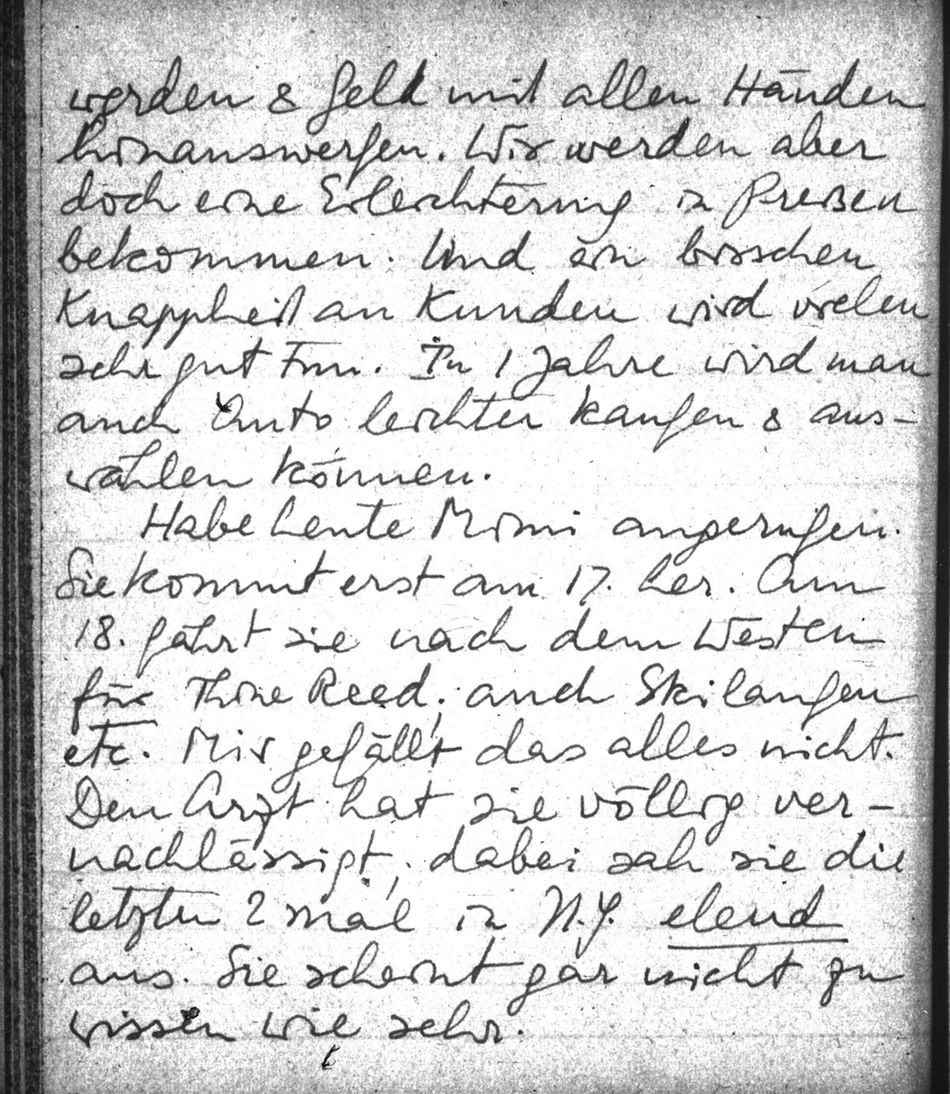 werden & Geld mit allen Händen
hinauswerfen. Wir werden aber
doch eine Erleichterung in Preisen
bekommen. Und ein bisschen
Knappheit an Kunden wird vielen
sehr gut tun. In 1 Jahre wird man
auch Auto leichter kaufen & aus-
wählen können.
Habe heute Mimi angerufen.
Sie kommt erst am 17. her. Am
18. fährt sie nach dem Westen
für Reed; auch Skilaufen
etc. Mir gefällt das alles nicht.
Den Arzt hat sie völlig ver-
nachlässigt, dabei sah sie die
letzten 2 mal in N.Y. elend
aus. Sie scheint gar nicht zu
wissen wie sehr.